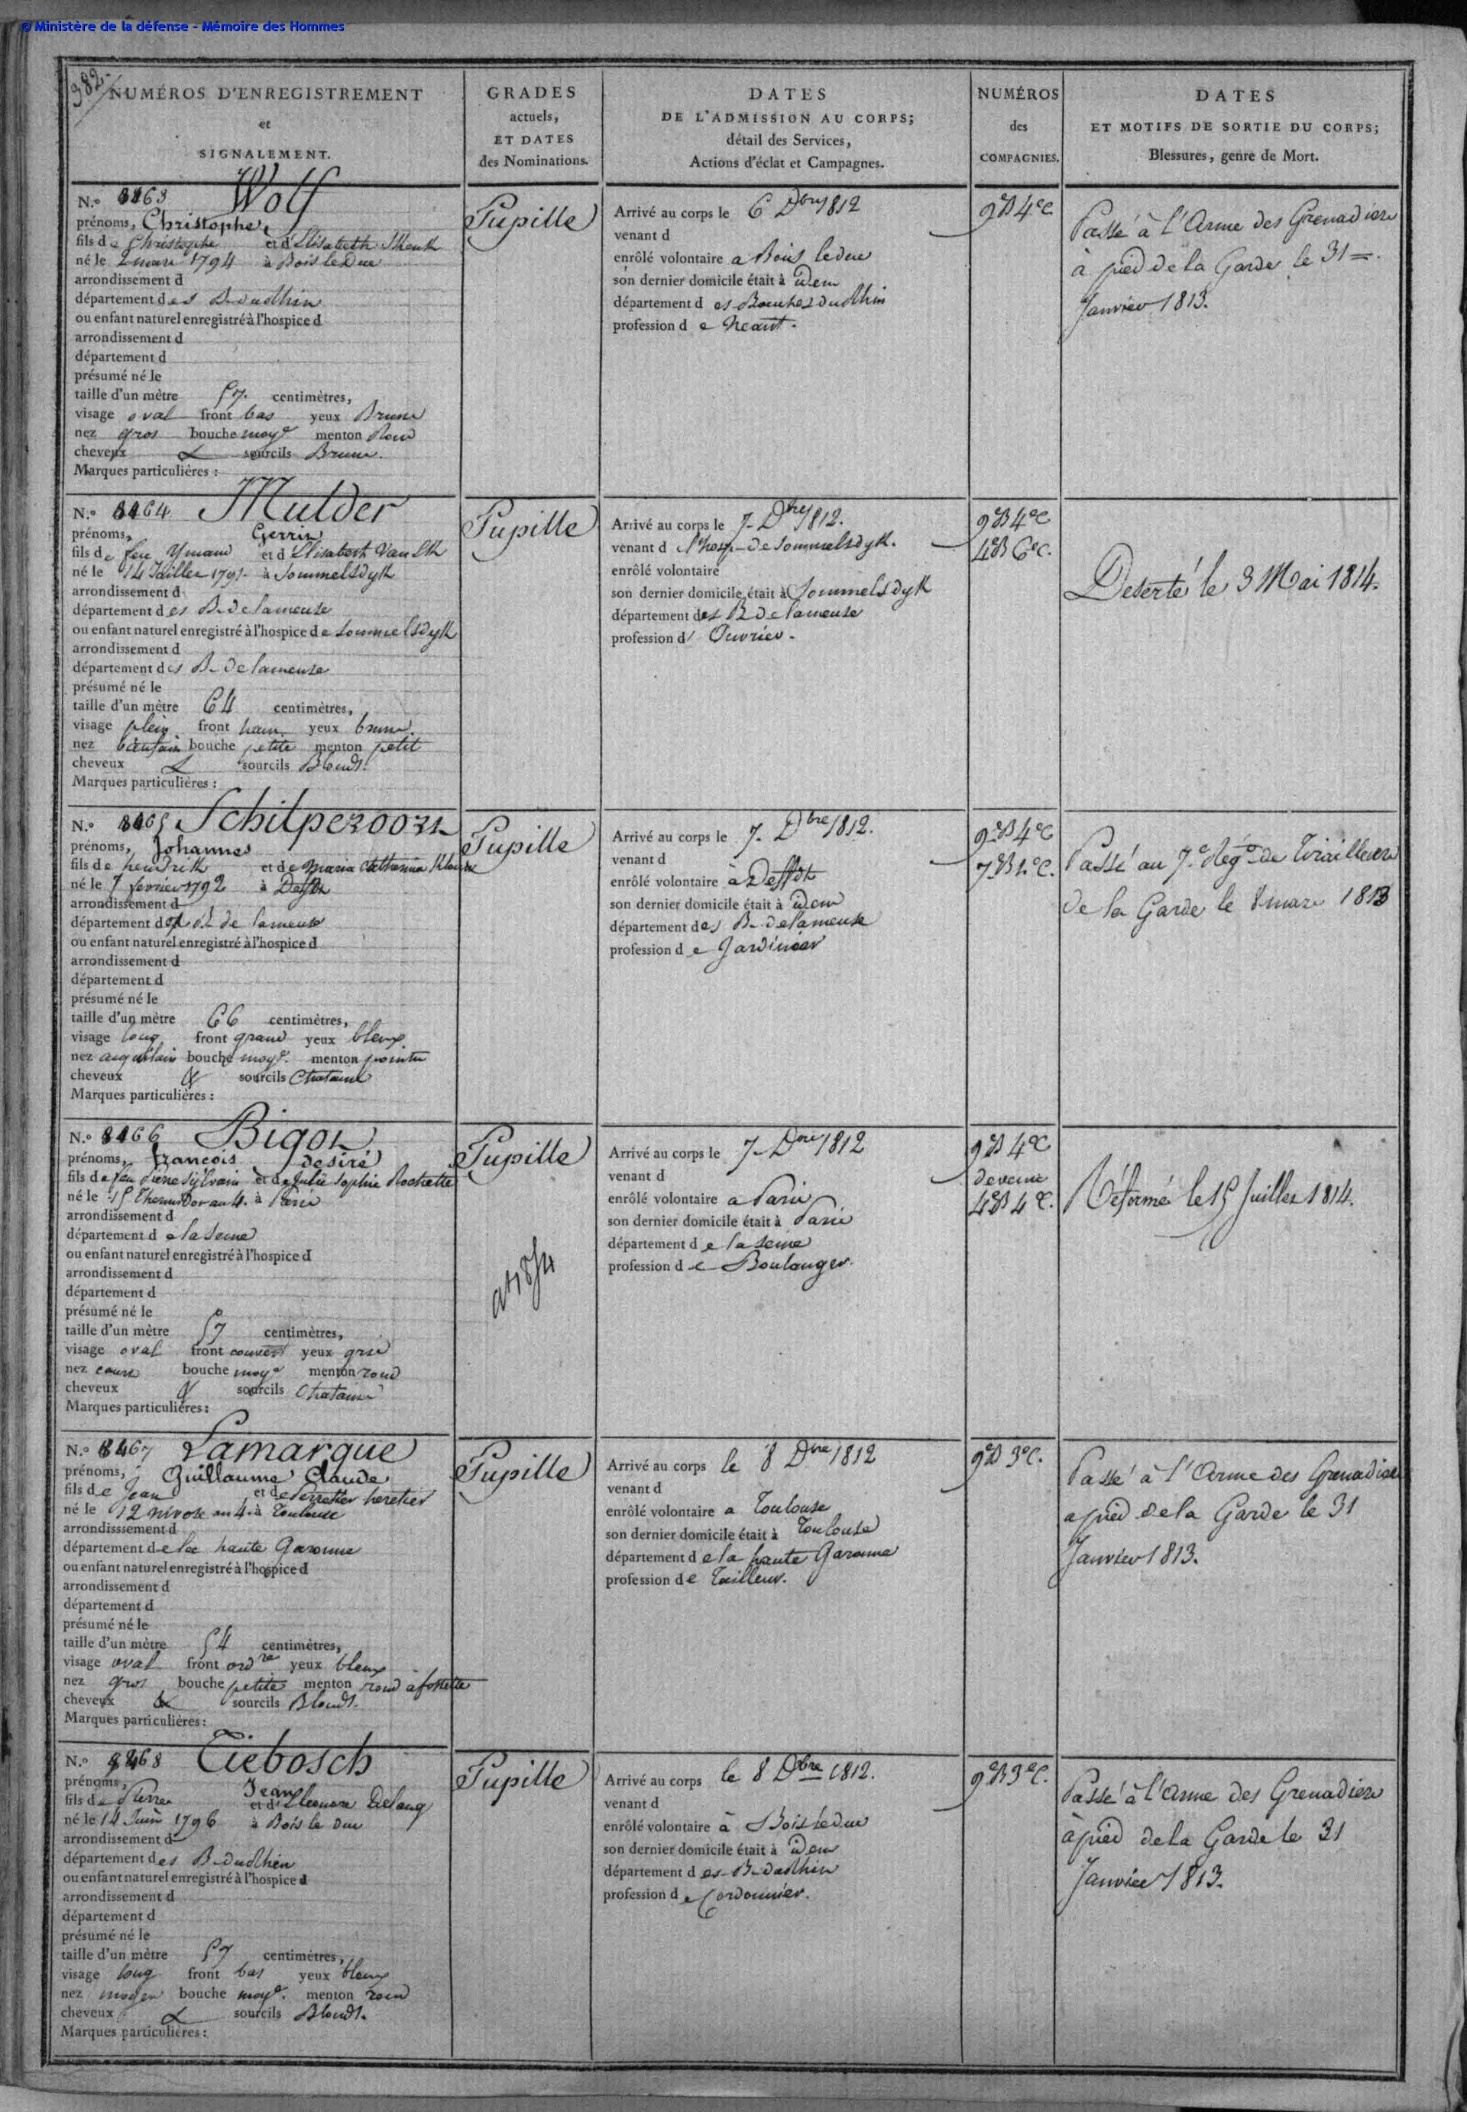 © Ministère de la défense - Mémoire des Hommes
382.
NUMÉROS D'ENREGISTREMENT
et
SIGNALEMENT.
GRADES
actuels,
ET DATES
des Nominations.
DATES
DE L'ADMISSION AU CORPS;
détail des Services,
Actions d'éclat et Campagnes.
NUMÉROS
des
COMPAGNIES.
DATES
ET MOTIFS DE SORTIE DU CORPS;
Blessures, genre de Mort.
N.º 8163 Wolf
prénoms, Christophe
fils de Christophe et d'Elisabeth
né le 2 mars 1794 à Bois le Duc
arrondissement d
département des B. du Rhin
ou enfant naturel enregistré à l'hospice d
arrondissement d
département d
présumé né le
taille d'un mètre 57. centimètres,
visage oval front bas yeux Bruns
nez gros bouche moye menton Rond
cheveux & sourcils Bruns.
Marques particulières :
Pupille
Arrivé au corps le 6 Dbre 1812
venant d
enrôlé volontaire a Bois le duc
son dernier domicile était à idem
département des Bouches du Rhin
profession de neant.
9eB 4eC
Passé à l'Arme des Grenadiers
à pied de la Garde le 31
Janvier 1813.
N.º 8164 Mulder
prénoms, Gerrin
fils de feu Ymand et d'Elisabeth Van
né le 14 Juillet 1795. à Sommelsdyk
arrondissement d
département des B. de la meuse
ou enfant naturel enregistré à l'hospice de Sommelsdyk
arrondissement d
département des B. de la meuse
présumé né le
taille d'un mètre 64 centimètres,
visage plein front haut yeux bruns.
nez bouche petite menton petit
cheveux & sourcils Blonds.
Marques particulières :
Pupille
Arrivé au corps le 7. Dbre 1812.
venant d l'hosp. de Sommelsdyk.
enrôlé volontaire
son dernier domicile était à Sommelsdyk
département des B de la meuse
profession d' Ouvrier.
9eB 4eC
4eB 6eC.
Deserté le 3 Mai 1814.
N.º 8165 Schilperoort
prénoms, Johannes
fils de hendrik et de Maria Catharina
né le 7 fevrier 1792 à Delft
arrondissement d
département des b. de la meuse
ou enfant naturel enregistré à l'hospice d
arrondissement d
département d
présumé né le
taille d'un mètre 66 centimètres,
visage long front grand yeux bleux.
nez aquilain bouche moye. menton pointu
cheveux & sourcils Chatains
Marques particulières :
Pupille
Arrivé au corps le 7. Dbre 1812.
venant d
enrôlé volontaire à Delft
son dernier domicile était à idem
département des B. de la meuse
profession de Jardinier
9eB 4eC
7eB 1eC.
Passé au 7e Régt de Tirailleurs
de la Garde le 8 mars 1813
N.º 8166 Bigot
prénoms, francois desiré
fils de feu Pierre Sylvain et de Julie Sophie Rochette
né le 15 Thermidor an 4. à Paris
arrondissement d
département de la Seine
ou enfant naturel enregistré à l'hospice d
arrondissement d
département d
présumé né le
taille d'un mètre 57 centimètres,
visage oval front couvert yeux gris
nez court bouche moye menton rond
cheveux & sourcils Chatains
Marques particulières :
Pupille
Arrivé au corps le 7. Dbre 1812
venant d
enrôlé volontaire a Paris
son dernier domicile était à Paris
département de la Seine
profession de Boulanger.
9eB 4eC
devenu
4eB 4eC.
Réformé le 15 Juillet 1814.
N.º 8167 Lamarque
prénoms, Guillaume Claude
fils de Jean et de Perrette heretier
né le 12 nivose an 4. à Toulouse
arrondissement d
département de la haute Garonne
ou enfant naturel enregistré à l'hospice d
arrondissement d
département d
présumé né le
taille d'un mètre 54 centimètres,
visage oval front ordre yeux bleux
nez gros bouche petite menton rond à fossette
cheveux & sourcils Blonds.
Marques particulières :
Pupille
Arrivé au corps le 8 Dbre 1812
venant d
enrôlé volontaire a Toulouse
son dernier domicile était à Toulouse
département de la haute Garonne
profession de Tailleur.
9eB 3eC.
Passé à l'Arme des Grenadiers
a pied de la Garde le 31
Janvier 1813.
N.º 8168 Tiebosch
prénoms, Jean
fils de Pierre et d'Eleonore Delang
né le 14 Juin 1796 à Bois le Duc
arrondissement d
département des B. du Rhin
ou enfant naturel enregistré à l'hospice d
arrondissement d
département d
présumé né le
taille d'un mètre 57 centimètres,
visage long front bas yeux bleux
nez moyen bouche moye. menton rond
cheveux & sourcils Blonds.
Marques particulières :
Pupille
Arrivé au corps le 8 Dbre 1812.
venant d
enrôlé volontaire à Bois le duc
son dernier domicile était à idem
département des B. du Rhin
profession de Cordonnier.
9eB 3eC.
Passé à l'Arme des Grenadiers
à pied de la Garde le 31
Janvier 1813.